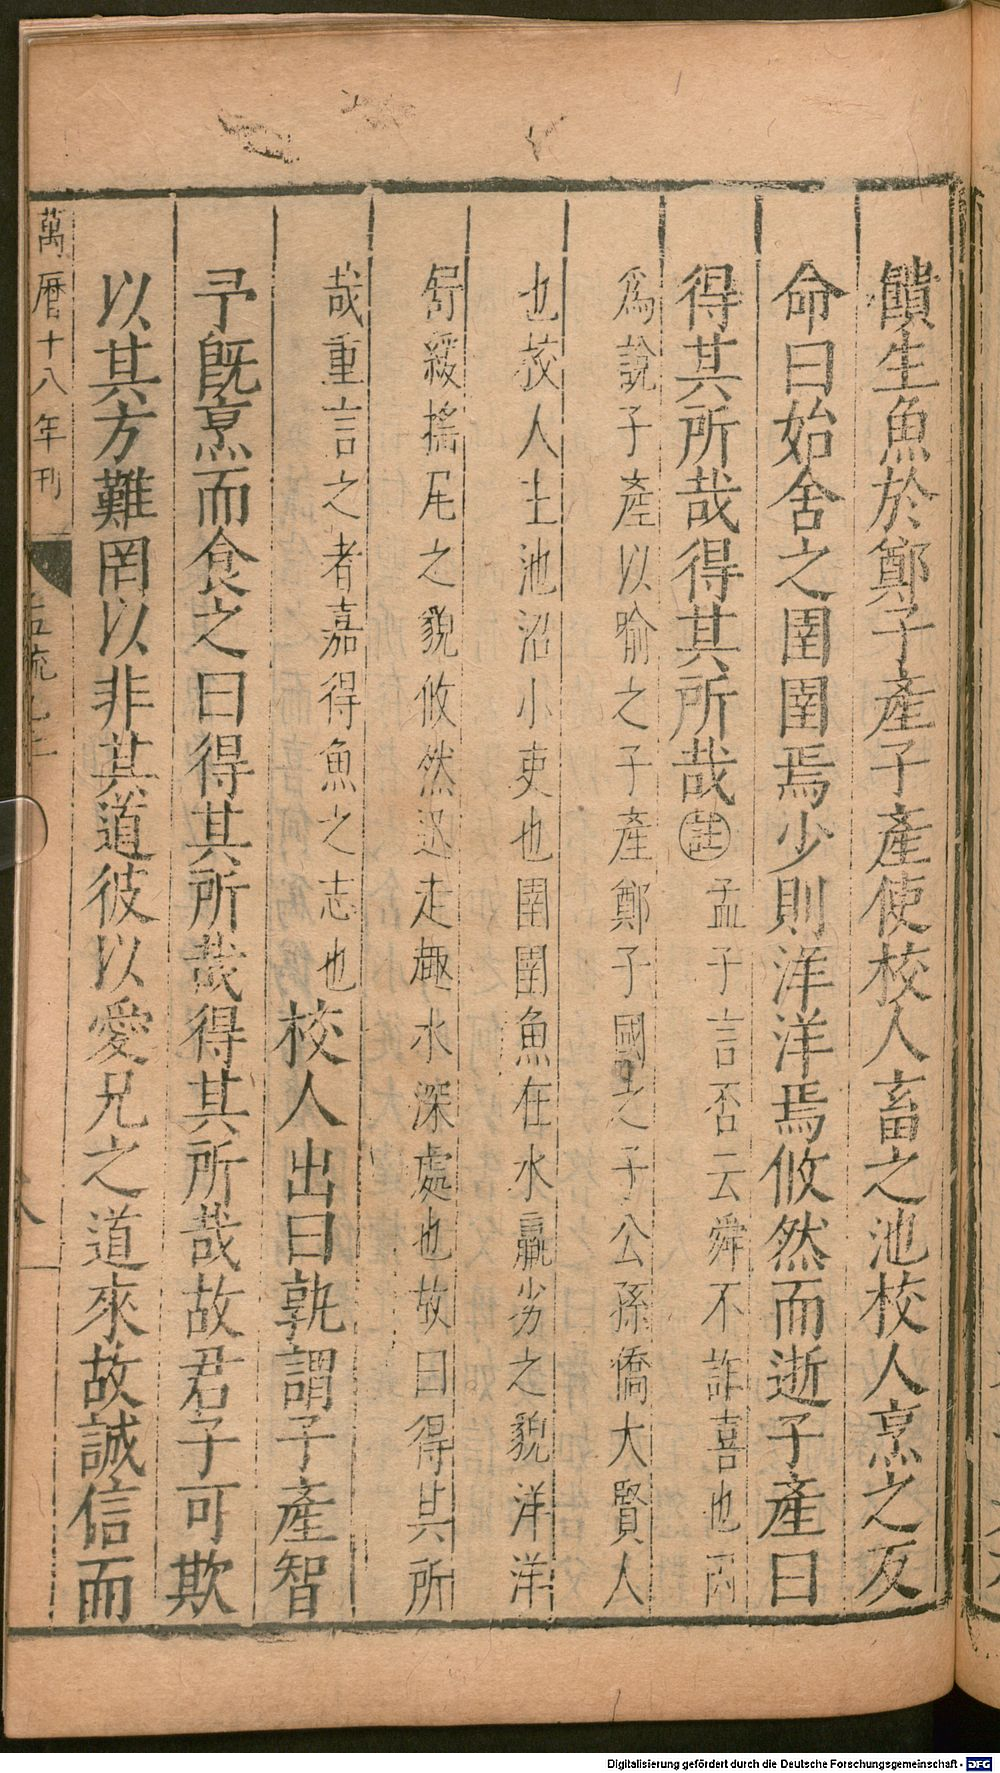 饋生魚於鄭子產子產使校人畜之池校人烹之反
命曰始舍之圉圉焉少則洋洋焉攸然而逝子產曰
得其所哉得其所哉註孟子言否云舜不詐喜也因
爲說子產以喻之子產鄭子國之子公孫僑大賢人
也校人主池沼小吏也圉圉魚在水羸劣之貌洋洋
舒緩搖尾之貌攸然迅走趣水深處也故曰得其所
哉重言之者嘉得魚之志也校人出曰孰謂子產智
予旣烹而食之曰得其所哉得其所哉故君子可欺
以其方難罔以非其道彼以愛兄之道來故誠信而
萬曆十八年刊
Digitalisierung gefördert durch die Deutsche Forschungsgemeinschaft - DFG